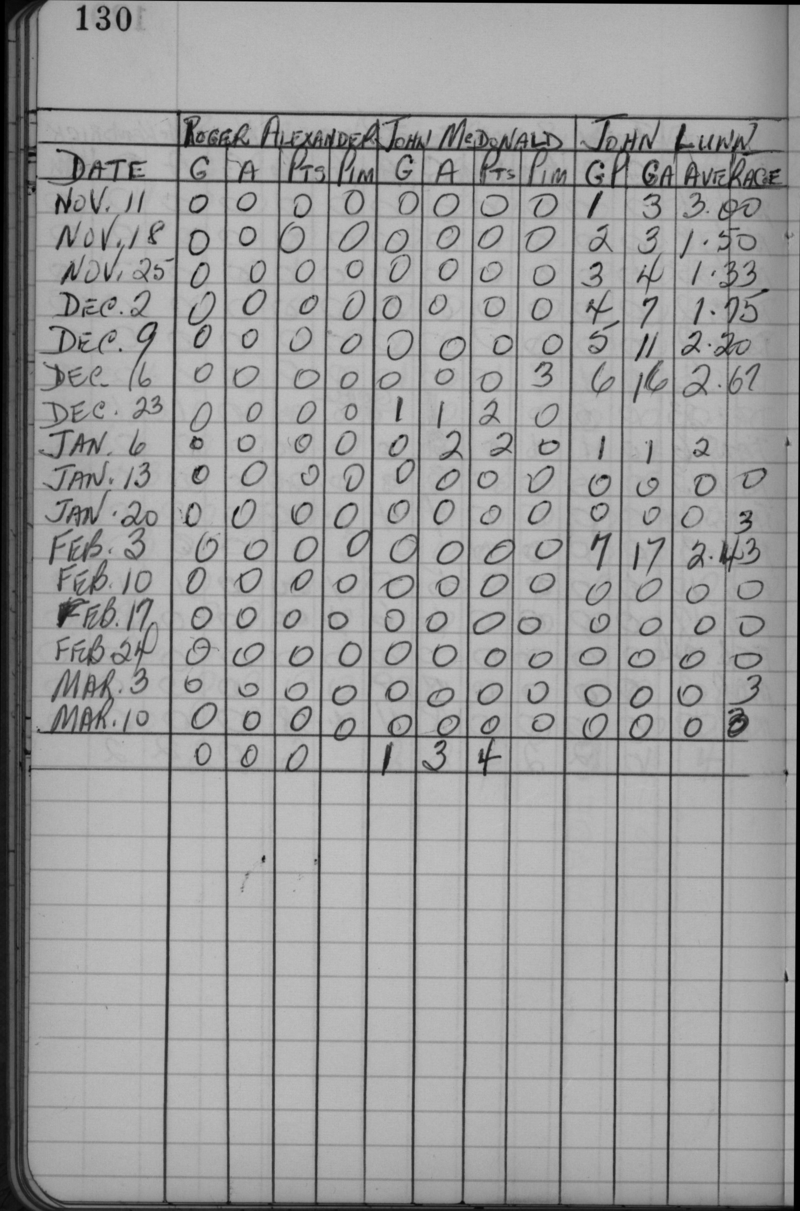 130
ROGER ALEXANDER JOHN McDONALD JOHN LUNN
DATE G A PTS PIM G A PTS PIM GP GA AVERAGE
NOV. 11 0 0 0 0 0 0 0 0 1 3 3.00
NOV. 18 0 0 0 0 0 0 0 0 2 3 1.50
NOV. 25 0 0 0 0 0 0 0 0 3 4 1.33
DEC. 2 0 0 0 0 0 0 0 0 4 7 1.75
DEC. 9 0 0 0 0 0 0 0 0 5 11 2.20
DEC 16 0 0 0 0 0 0 0 3 6 16 2.67
DEC. 23 0 0 0 0 1 1 2 0
JAN. 6 0 0 0 0 0 2 2 0 1 1 2
JAN. 13 0 0 0 0 0 0 0 0 0 0 0 0
JAN. 20 0 0 0 0 0 0 0 0 0 0 0 3
FEB. 3 0 0 0 0 0 0 0 0 7 17 2.43
FEB. 10 0 0 0 0 0 0 0 0 0 0 0 0
FEB. 17 0 0 0 0 0 0 0 0 0 0 0 0
FEB 24 0 0 0 0 0 0 0 0 0 0 0 0
MAR. 3 0 0 0 0 0 0 0 0 0 0 0 3
MAR. 10 0 0 0 0 0 0 0 0 0 0 0 3
0 0 0 1 3 4